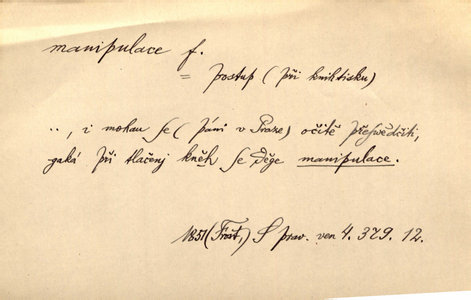 manipulace f.
= postup (při knihtisku)
..., i mohau se (páni v Praze) očitě přeswědčiti,
gaká při tlačenj kněh se děge manipulace.
1851 (Frošt,) S prav. ven 4. 329. 12.